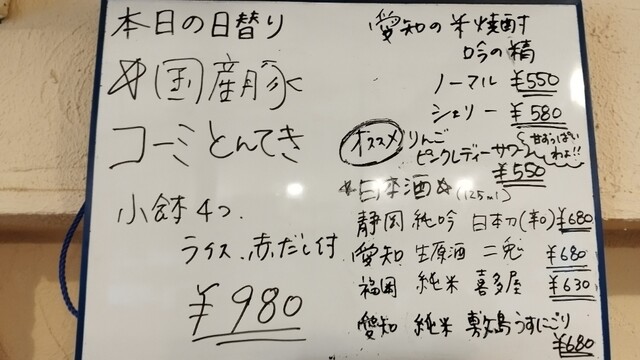 本日の日替り
国産豚
コーミとんてき
小鉢4つ
ライス、赤だし付
￥980
愛知の米焼酎
吟の精
ノーマル ￥550
シェリー ￥580
オススメ りんご
ピンクレディーサワー
甘ずっぱい
わよ!!
￥550
*日本酒* (125ml)
静岡 純吟 日本刀(辛口) ￥680
愛知 生原酒 二兎 ￥680
福岡 純米 喜多屋 ￥630
愛知 純米 敷嶋うすにごり
￥680